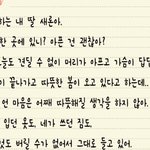 하는 내 딸 새론아.
한 곳에 있니? 아픈 건 괜찮아?
도 견딜 수 없이 머리가 아프고 가슴이 답답
이 끝나가고 따뜻한 봄이 오고 있다고 하는데..
연 마음은 어째 따뜻해질 생각을 하지 않아.
입던 옷도, 네가 쓰던 짐도.
것도 버릴 수가 없어서 그대로 들고 있어.